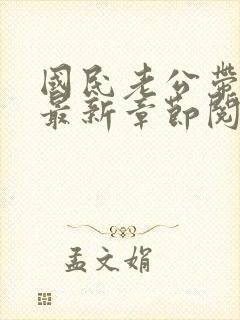 國民老公帶
最新章節閱
孟文娟